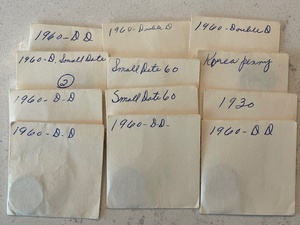 1960-D D
1960-Double D
1960-Double D
1960-D. Small Date
2
Small Date 60
Korea penny
1960-D-D
Small Date 60
1920
1960-D.D
1960-D.D-
1960-D D